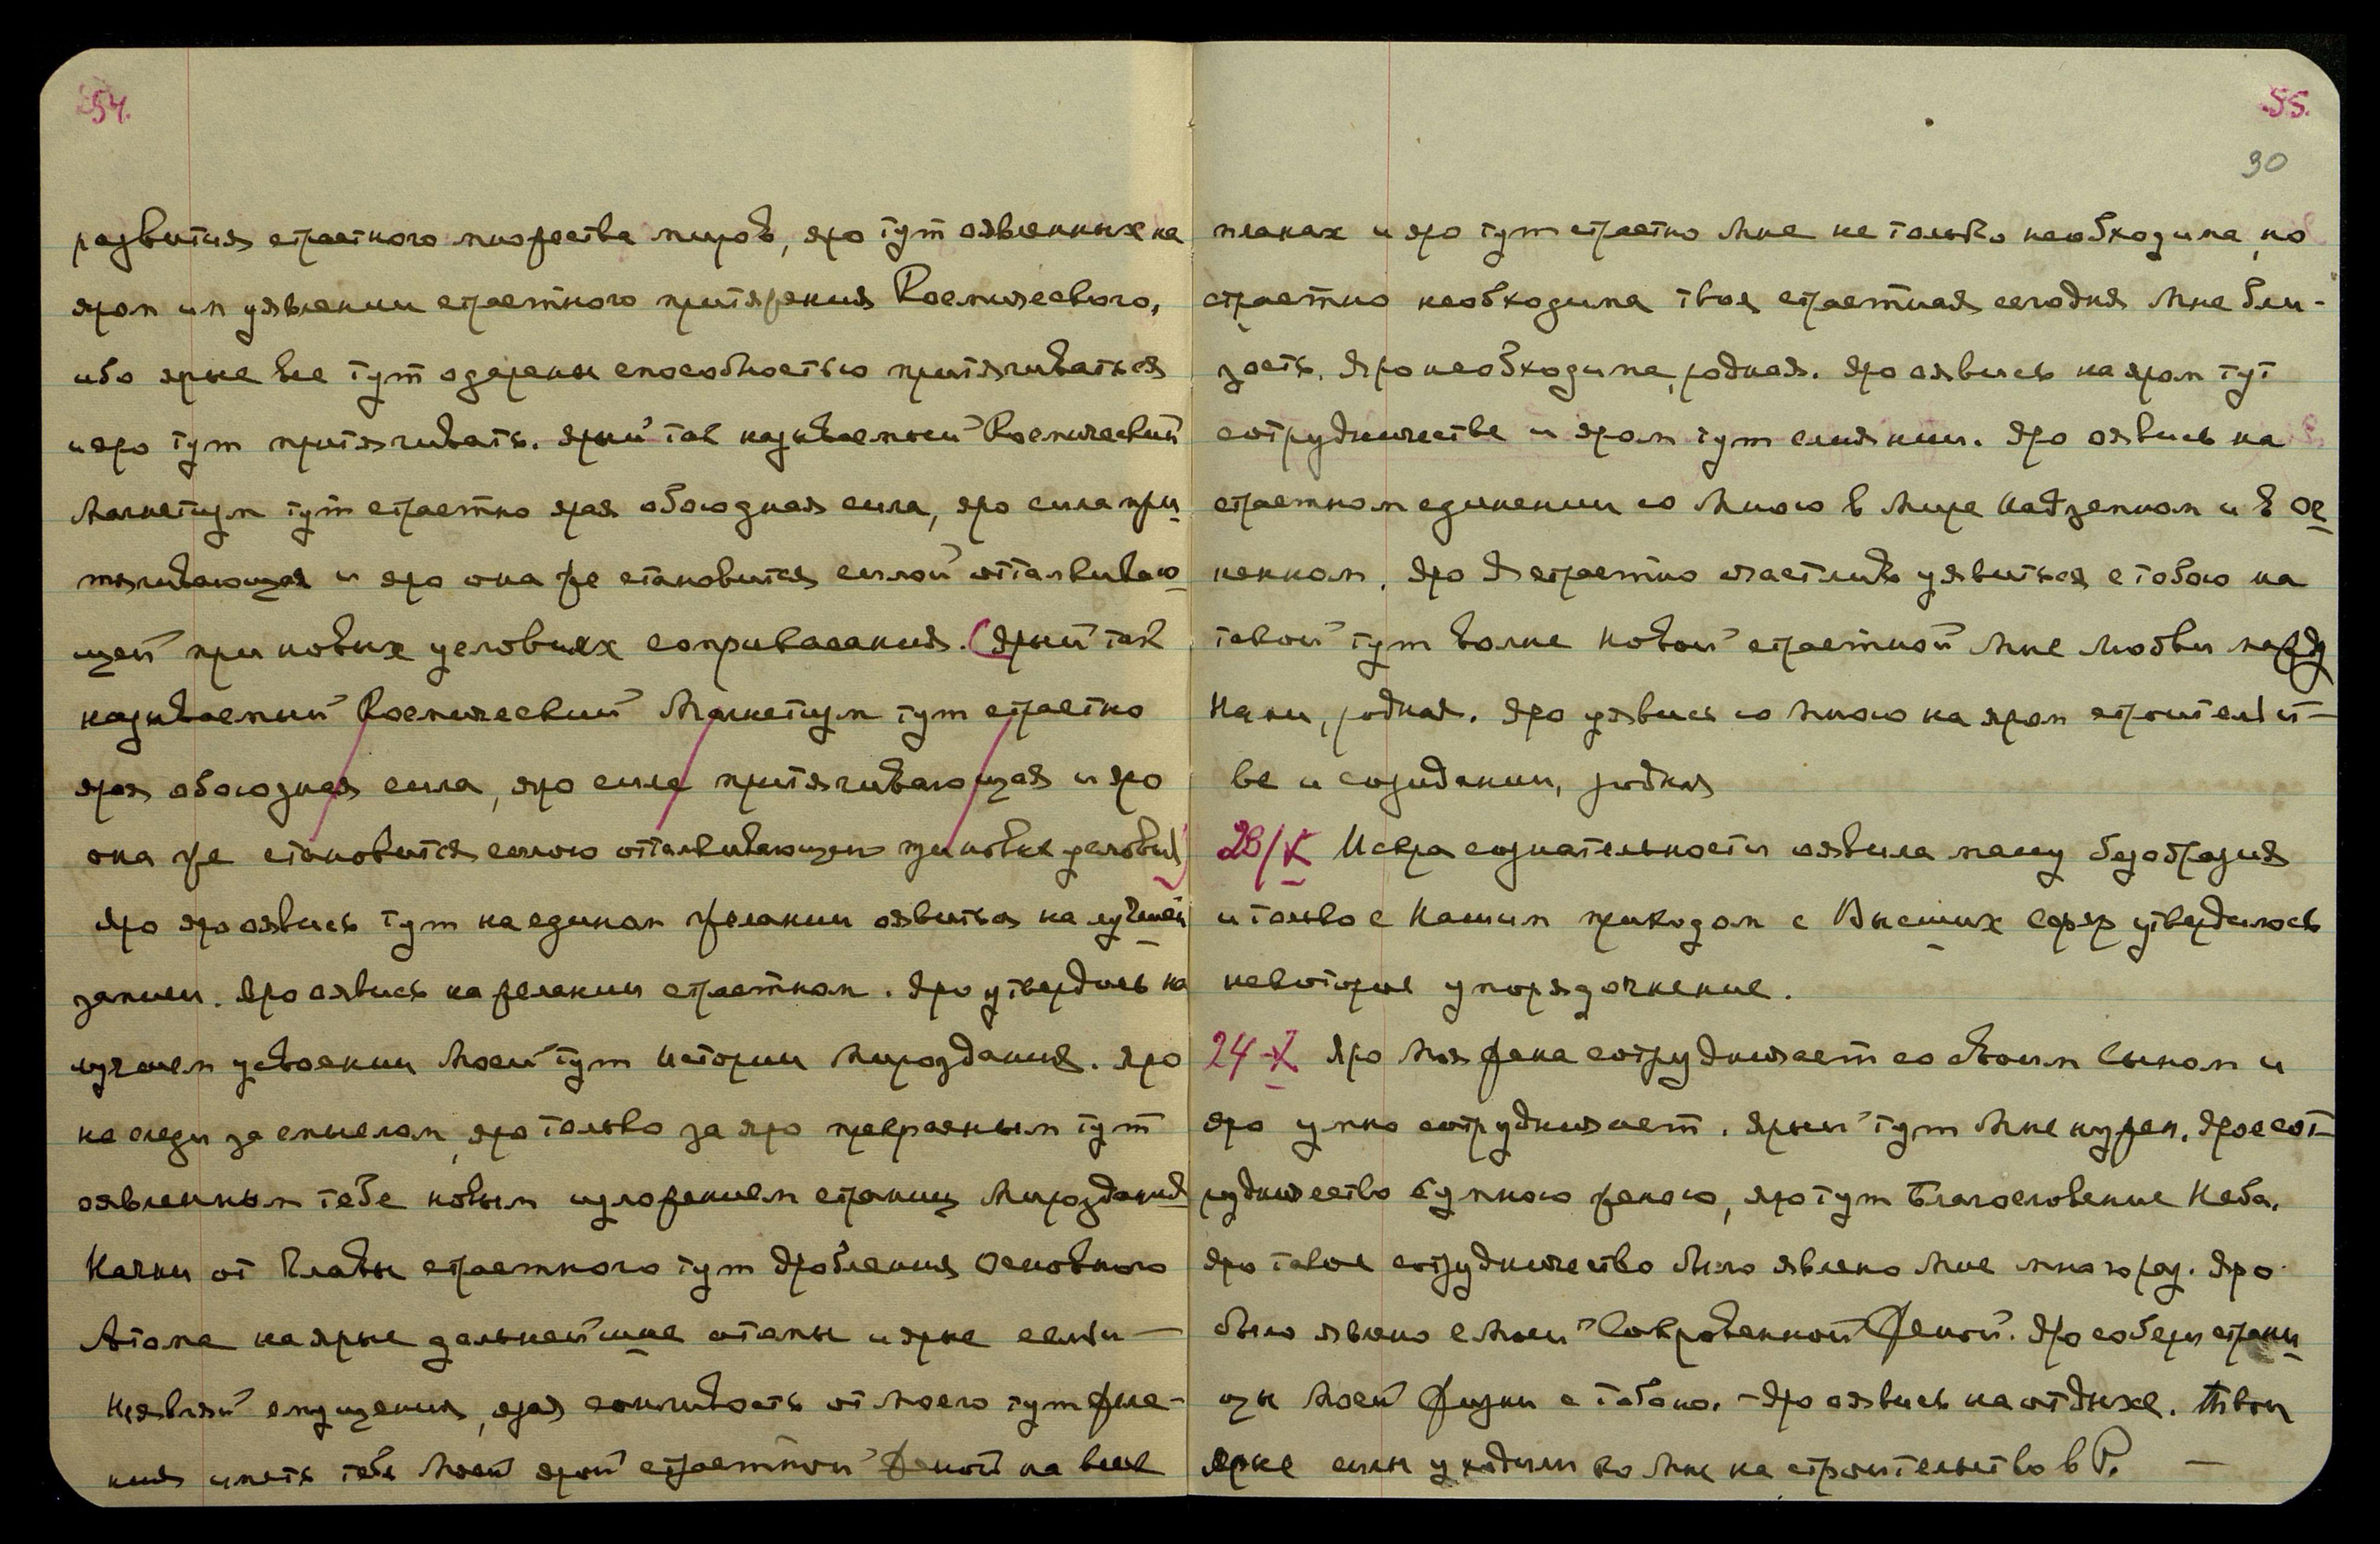 54.
развития страстного множества миров, яро тут оявленных на
яром им уявлении страстного притяжения Космического,
ибо ярые все тут одарены способностью притягиваться
и яро тут притягивать. Ярый так называемый Космический
Магнетизм тут страстно ярая обоюдная сила, яро сила при
тягивающая и яро она же становится силой отталкиваю
щей при новых условиях соприкасания. (Ярый так
называемый Космический Магнетизм тут страстно
ярая обоюдная сила, яро сила притягивающая и яро
она же становится силою отталкивающею при новых условиях)
Яро яро оявись тут на едином желании оявиться на лучшей
записи. Яро оявись на желании страстном. Яро утвердись на
лучшем усвоении Моей тут Истории Мироздания. Яро
не следи за смыслом, яро только за яро прекрасным тут
оявленным тебе новым изложением страниц Мироздания
Начни от Главы страстного тут дробления Основного
Атома на ярые дальнейшие атомы и ярые если —
Являй смущения, ярая сонливость от Моего тут жела-
ния иметь тебя Моей ярой страстной Женой на всех
55.
90
планах и яро тут страстно Мне не только необходима, но
страстно необходима твоя страстная сегодня Мне бли-
зость. Яро необходима, родная. Яро оявись на яром тут
сотрудничестве и яром тут слиянии. Яро оявись на
страстном единении со Мною в Мире Надземном и в Ог
ненном. Яро Я страстно счастлив уявиться с тобою на
такой тут волне новой страстной Мне Любви между
Нами, родная. Яро уявись со Мною на яром строительст-
ве и созидании, родная
23/X Искра сознательности оявила массу безобразия
и только с Нашим приходом с Высших Сфер утвердилось
некоторое упорядочнение.
24-X Яро Моя жена сотрудничает со своим Сыном и
яро умно сотрудничает. Ярый тут Мне нужен. Ярое сот-
рудничество с умною женою, яро тут Благословение Неба.
Яро такое сотрудничество было явлено Мне много раз. Яро
было явлено с Моей Сокровенной Женой. Яро собери страни
цы Моей Жизни с Тобою. - Яро оявись на отдыхе. Твои
Ярые силы уходили ко Мне на строительство в Р. —